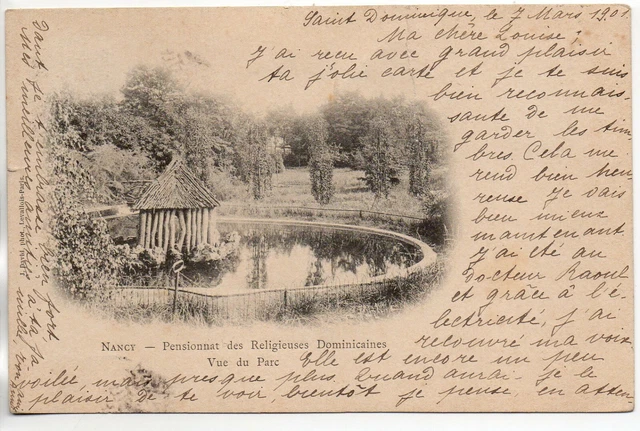 Saint Dominique, le 7 Mars 1901
Ma chère Louise,
J'ai reçu avec grand plaisir
ta jolie carte et je te suis
bien reconnais-
sante de me
garder les tim-
bres. Cela me
rend bien heu
reuse Je vais
bien mieux
maintenant
J'ai été au
Docteur Raoul
et grâce à l'é-
lectricité, j'ai
recouvré ma voix
Elle est encore un peu
voilée, mais presque plus. Quand aurai-je le
plaisir de te voir, bientôt je pense, en atten-
dant je t'embrasse bien fort
mes meilleurs à ta
NANCY — Pensionnat des Religieuses Dominicaines
Vue du Parc